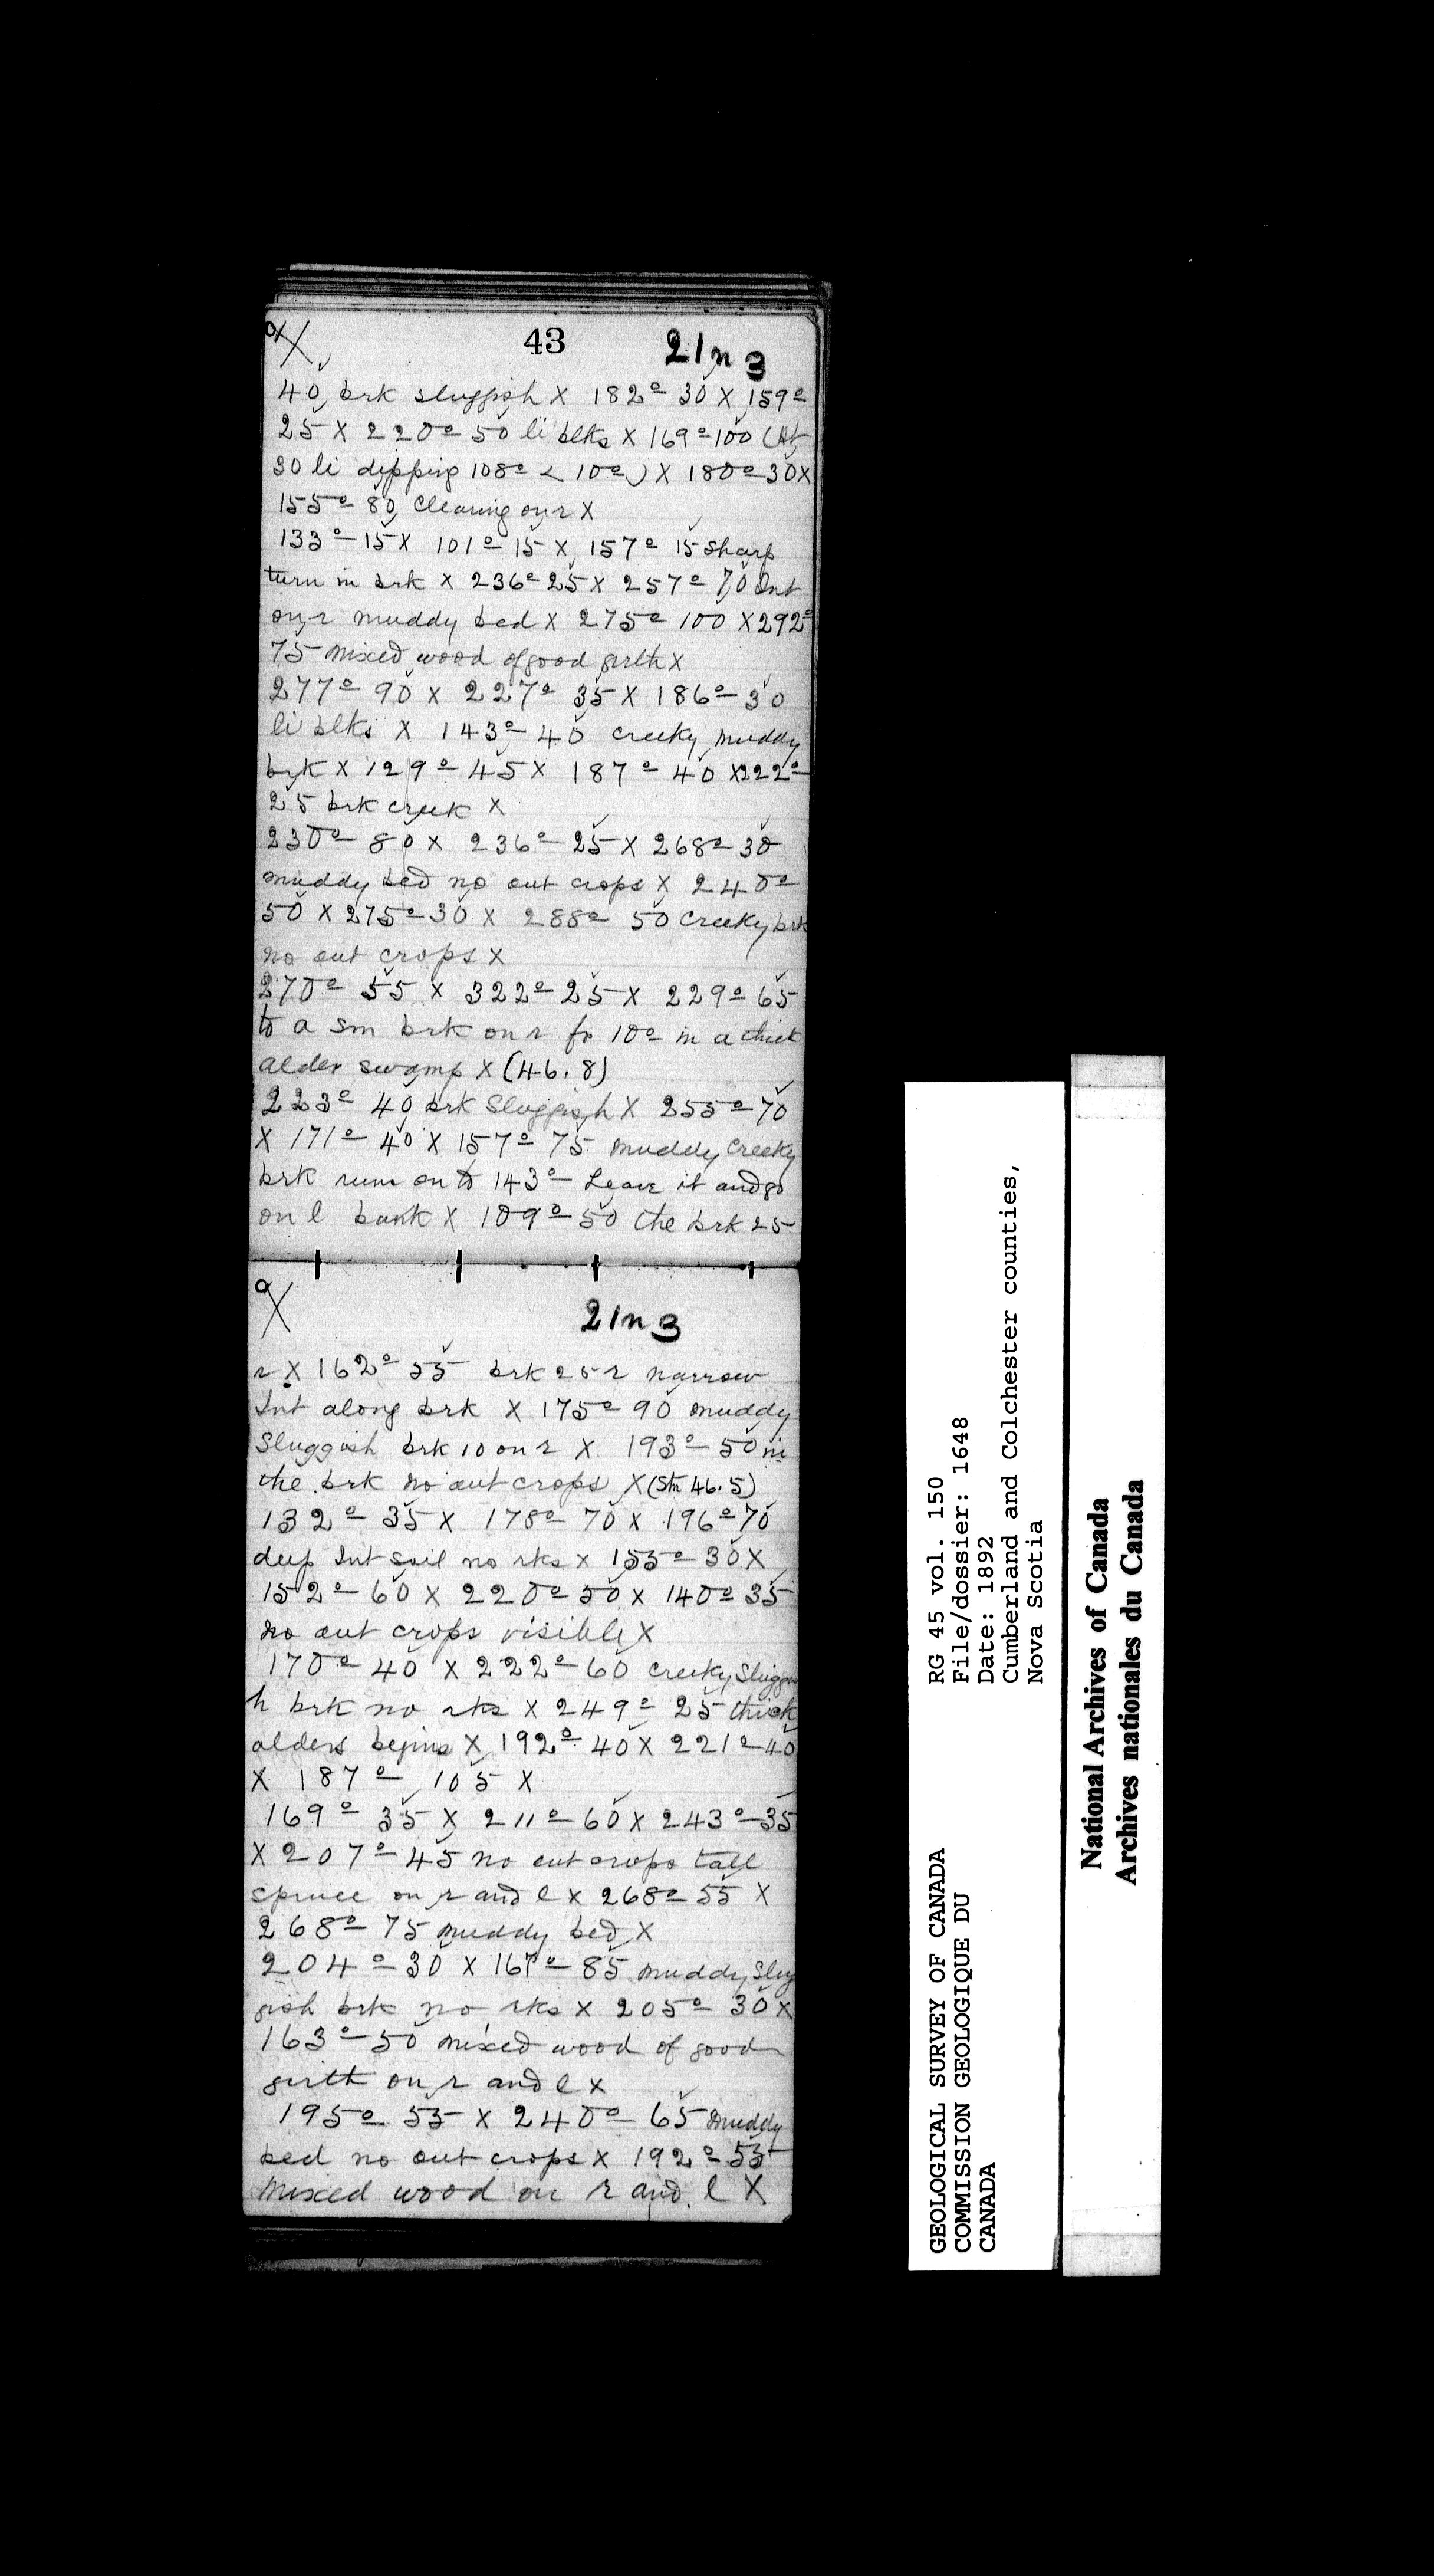 43
21n3
40 brk sluggish X 182° 30 X 159°
25 X 220° 50 li blks X 169° 100 (At
30 li dipping 108° < 10°) X 180° 30 X
155° 80 Clearing on r X
133° 15 X 101° 15 X 157° 15 Sharp
turn in brk X 236° 25 X 257° 70 Int
on r muddy bed X 275° 100 X 292°
75 mixed wood of good girth X
277° 90 X 227° 35 X 186° 30
li blks X 143° 40 creeky muddy
brk X 129° 45 X 187° 40 X 222°
25 brk creek X
230° 80 X 236° 25 X 268° 30
muddy bed no out crops X 240°
50 X 275° 30 X 288° 50 Creeky brk
no out crops X
270° 55 X 322° 25 X 229° 65
to a sm brk on r fr 10° in a thick
alder swamp X (46.8)
223° 40 brk Sluggish X 255° 70
X 171° 40 X 157° 75 muddy Creeky
brk runs on to 143° Leave it and go
on l bank X 109° 50 the brk 25
21n3
r X 162° 55 brk 25 r narrow
Int along brk X 175° 90 muddy
Sluggish brk 10 on r X 193° 50 in
the brk no out crops X (Stn 46.5)
132° 35 X 178° 70 X 196° 70
deep Int soil no rks X 155° 30 X
152° 60 X 220° 50 X 140° 35
no out crops visible X
170° 40 X 222° 60 creeky Sluggis
h brk no rks X 249° 25 thick
alders begins X 192° 40 X 221° 40
X 187° 105 X
169° 35 X 211° 60 X 243° 35
X 207° 45 no out crops tall
spruce on r and l X 268° 55 X
268° 75 muddy bed X
204° 30 X 167° 85 muddy Slug
gish brk no rks X 205° 30 X
163° 50 mixed wood of good
girth on r and l X
195° 55 X 240° 65 muddy
bed no out crops X 192° 55
Mixed wood on r and l X
GEOLOGICAL SURVEY OF CANADA
COMMISSION GEOLOGIQUE DU
CANADA
RG 45 vol. 150
File/dossier: 1648
Date: 1892
Cumberland and Colchester counties,
Nova Scotia
National Archives of Canada
Archives nationales du Canada